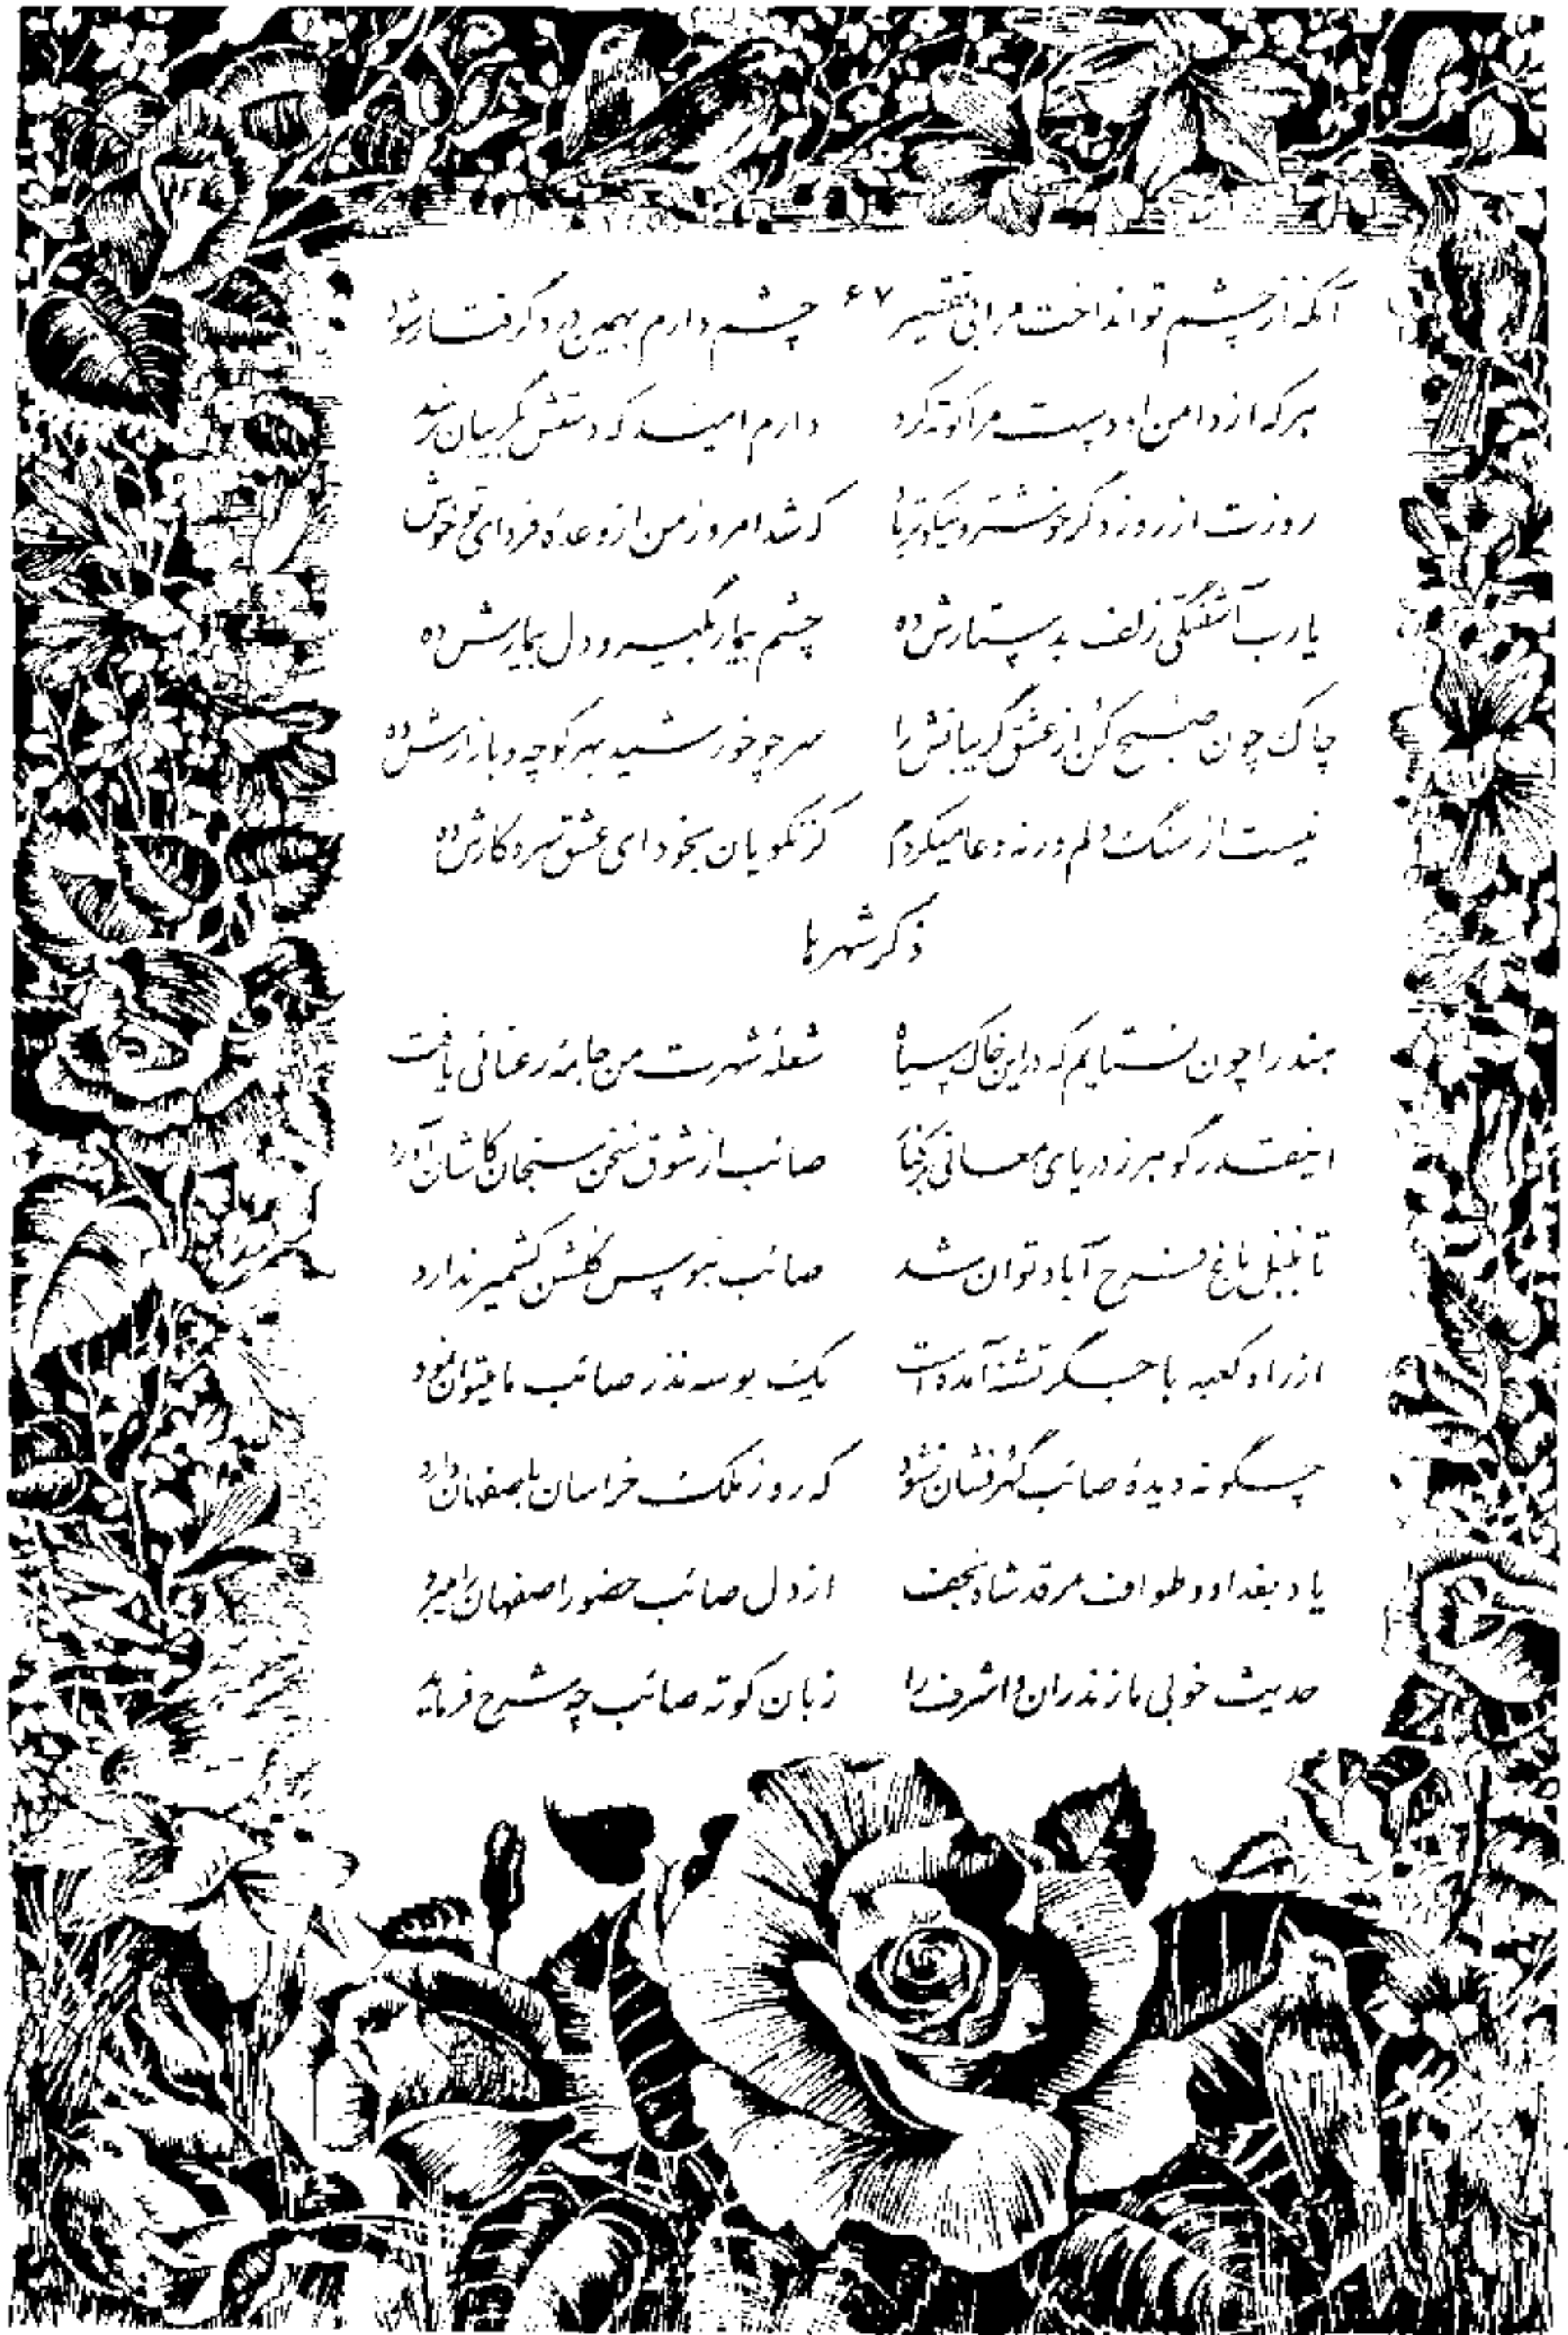 آنکه از چشم تو انداخت مرا بی تقصیر ۶۷ چشم دارم بهمین درد گرفتار شود
هرکه از دامن او دست مرا کوته کرد دارم امید که دستش بگریبان نرسد
روزت از روز دگر خوشتر و نیکوتر باد که شد امروز من از وعدهٔ فردای تو خوش
یارب آشفتگی زلف بدستارش ده چشم بیمار بگیر و دل بیمارش ده
چاک چون صبح کن از عشق گریبانش را سر چو خورشید بهر کوچه و بازارش ده
نیست از سنگ دلم ورنه دعا میکردم کز نکویان بخود ای عشق سر و کارش ده
ذکر شهرها
هند را چون نستایم که در این خاک سیاه شعلهٔ شهرت من جامهٔ رعنائی یافت
اینقدر گوهر ز دریای معانی برکنار صائب از شوق سخن سنجان کاشان آورد
تا بلبل باغ فرح آباد توان شد صائب هوس گلشن کشمیر ندارد
از راه کعبه با جگر تشنه آمده است یک بوسه نذر صائب ما میتوان نمود
چگونه دیدهٔ صائب گهرفشان نشود که روز ملک خراسان باصفهان دارد
یاد بغداد و طواف مرقد شاه نجف از دل صائب حضور اصفهان را میبرد
حدیث خوبی مازندران و اشرف را زبان کوته صائب چه شرح فرماید